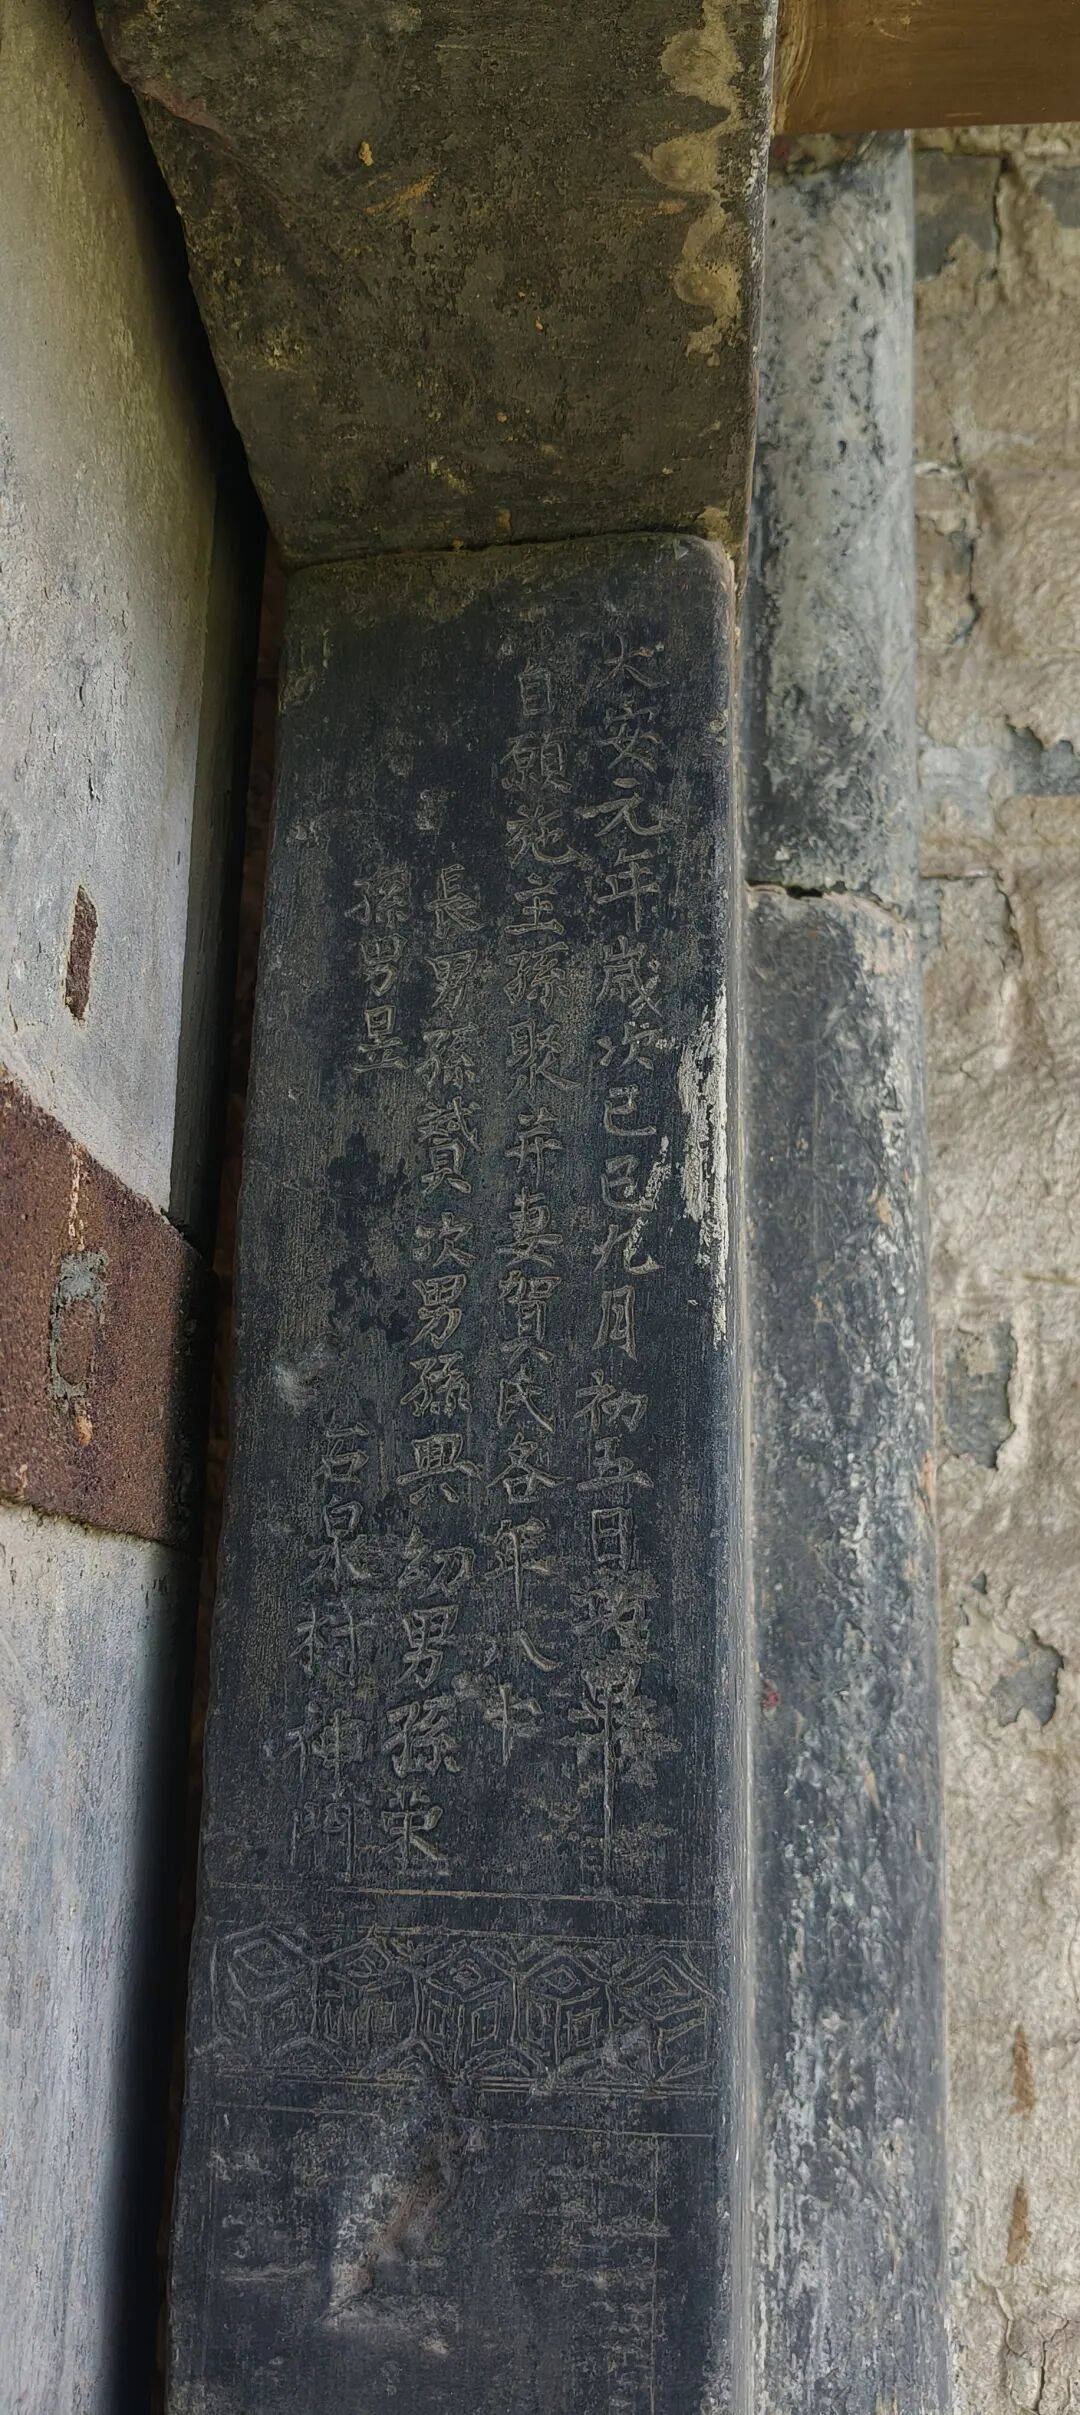 大安元年歲次己巳九月初五日
自願施主孫聚并妻賀氏各年八十
長男孫贇次男孫興幼男孫堂
孫男昱
石泉村神門